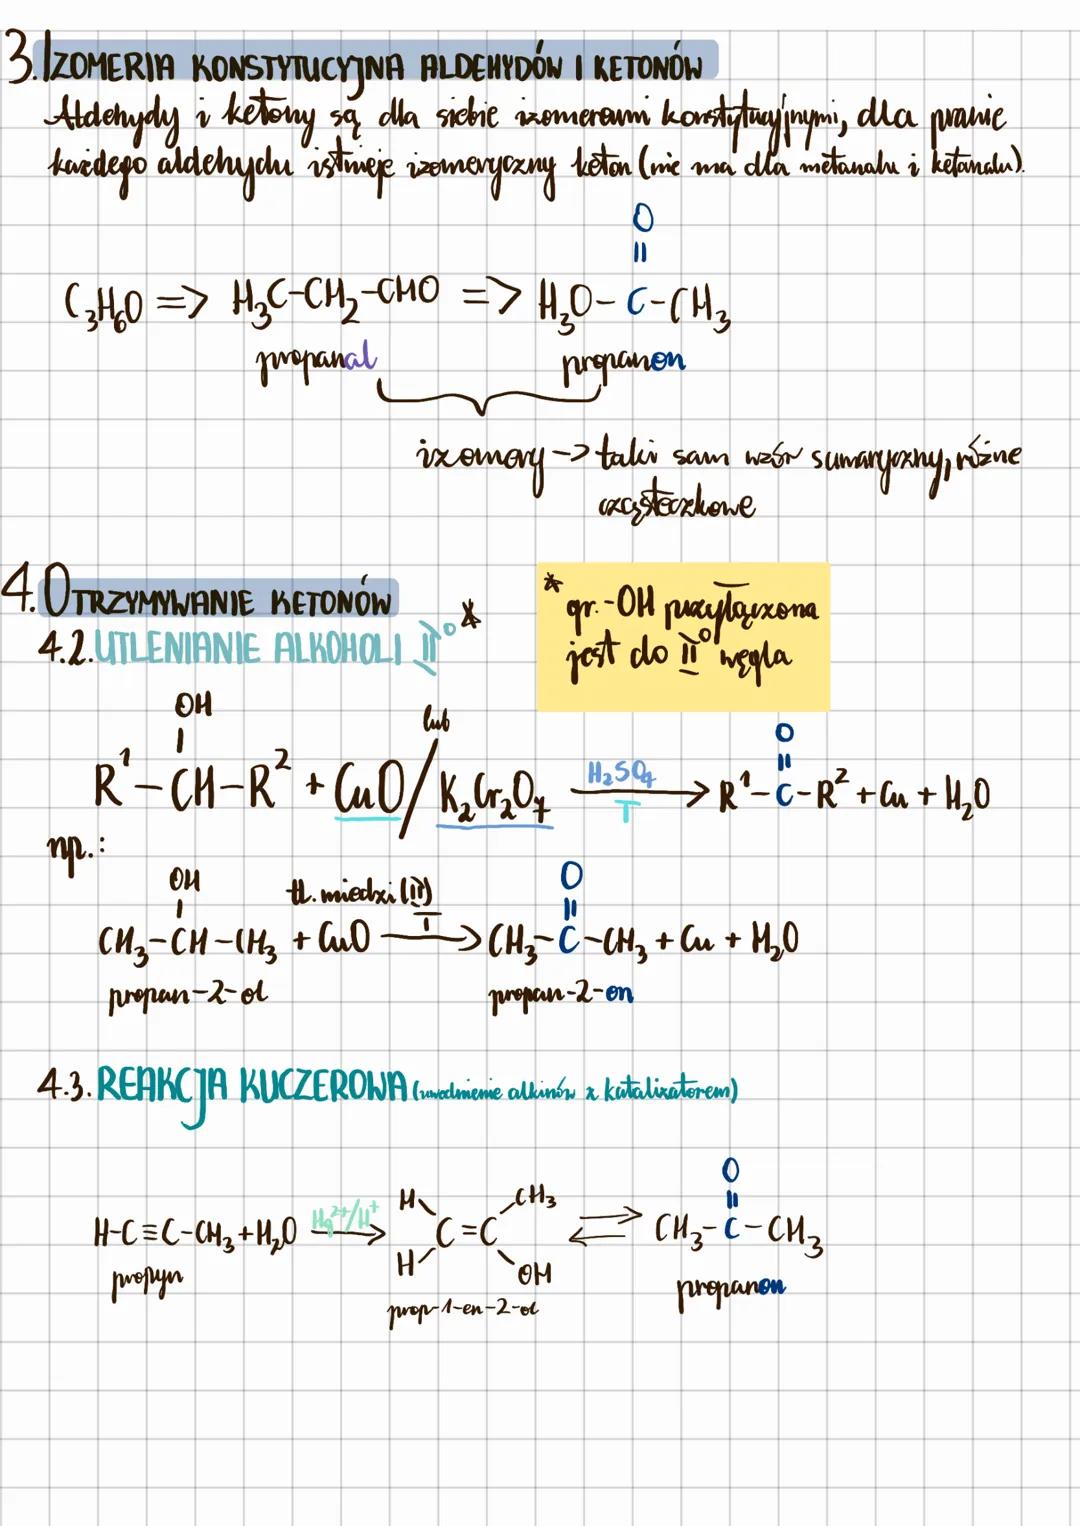 3. IZOMERIA KONSTYTUCYJNA ALDEHYDÓW I KETONÓW
Aldehydy i ketony są dla siebie izomerami konstytucyjnymi, dla prawie
każdego aldehydu istnieje izomeryczny keton (nie ma dla metanalu i ketanalu).
O
||
C₃H₆O => H₃C-CH₂-CHO => H₃O-C-CH₃
propanal propanon
izomery -> taki sam wzór sumaryczny, różne
cząsteczkowe
4. OTRZYMYWANIE KETONÓW
4.2. UTLENIANIE ALKOHOLI II° *
* gr. -OH przyłączona
jest do II° węgla
OH
|
lub
O
||
R¹-CH-R² + CuO / K₂Cr₂O₇ H₂SO₄ T → R¹-C-R² + Cu + H₂O
np.:
OH
|
tl. miedzi (II)
O
||
CH₃-CH-CH₃ + CuO T → CH₃-C-CH₃ + Cu + H₂O
propan-2-ol propan-2-on
4.3. REAKCJA KUCZEROWA (uwodnienie alkinów z katalizatorem)
O
||
H CH₃
H-C≡C-CH₃ + H₂O Hg²⁺/H⁺ → C=C ⇌ CH₃-C-CH₃
H OH
propyn prop-1-en-2-ol propanon